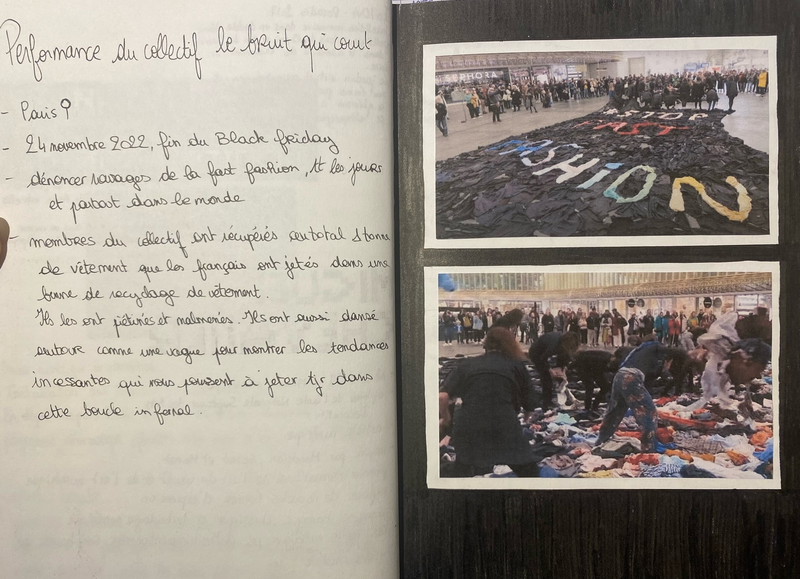 Performance du collectif le bruit qui court
- Paris
- 24 novembre 2022, fin du Black friday
- dénoncer ravages de la fast fashion, tt les jours
et partout dans le monde
- membres du collectif ont récupérés au total 1 tonne
de vêtement que les français ont jetés dans une
benne de recyclage de vêtement.
Ils les ont piétinés et malmenés. Ils ont aussi dansé
autour comme une vague pour montrer les tendances
incessantes qui nous poussent à jeter tjr dans
cette boucle infernal.
SEPHORA
#STOP
FAST
FASHION